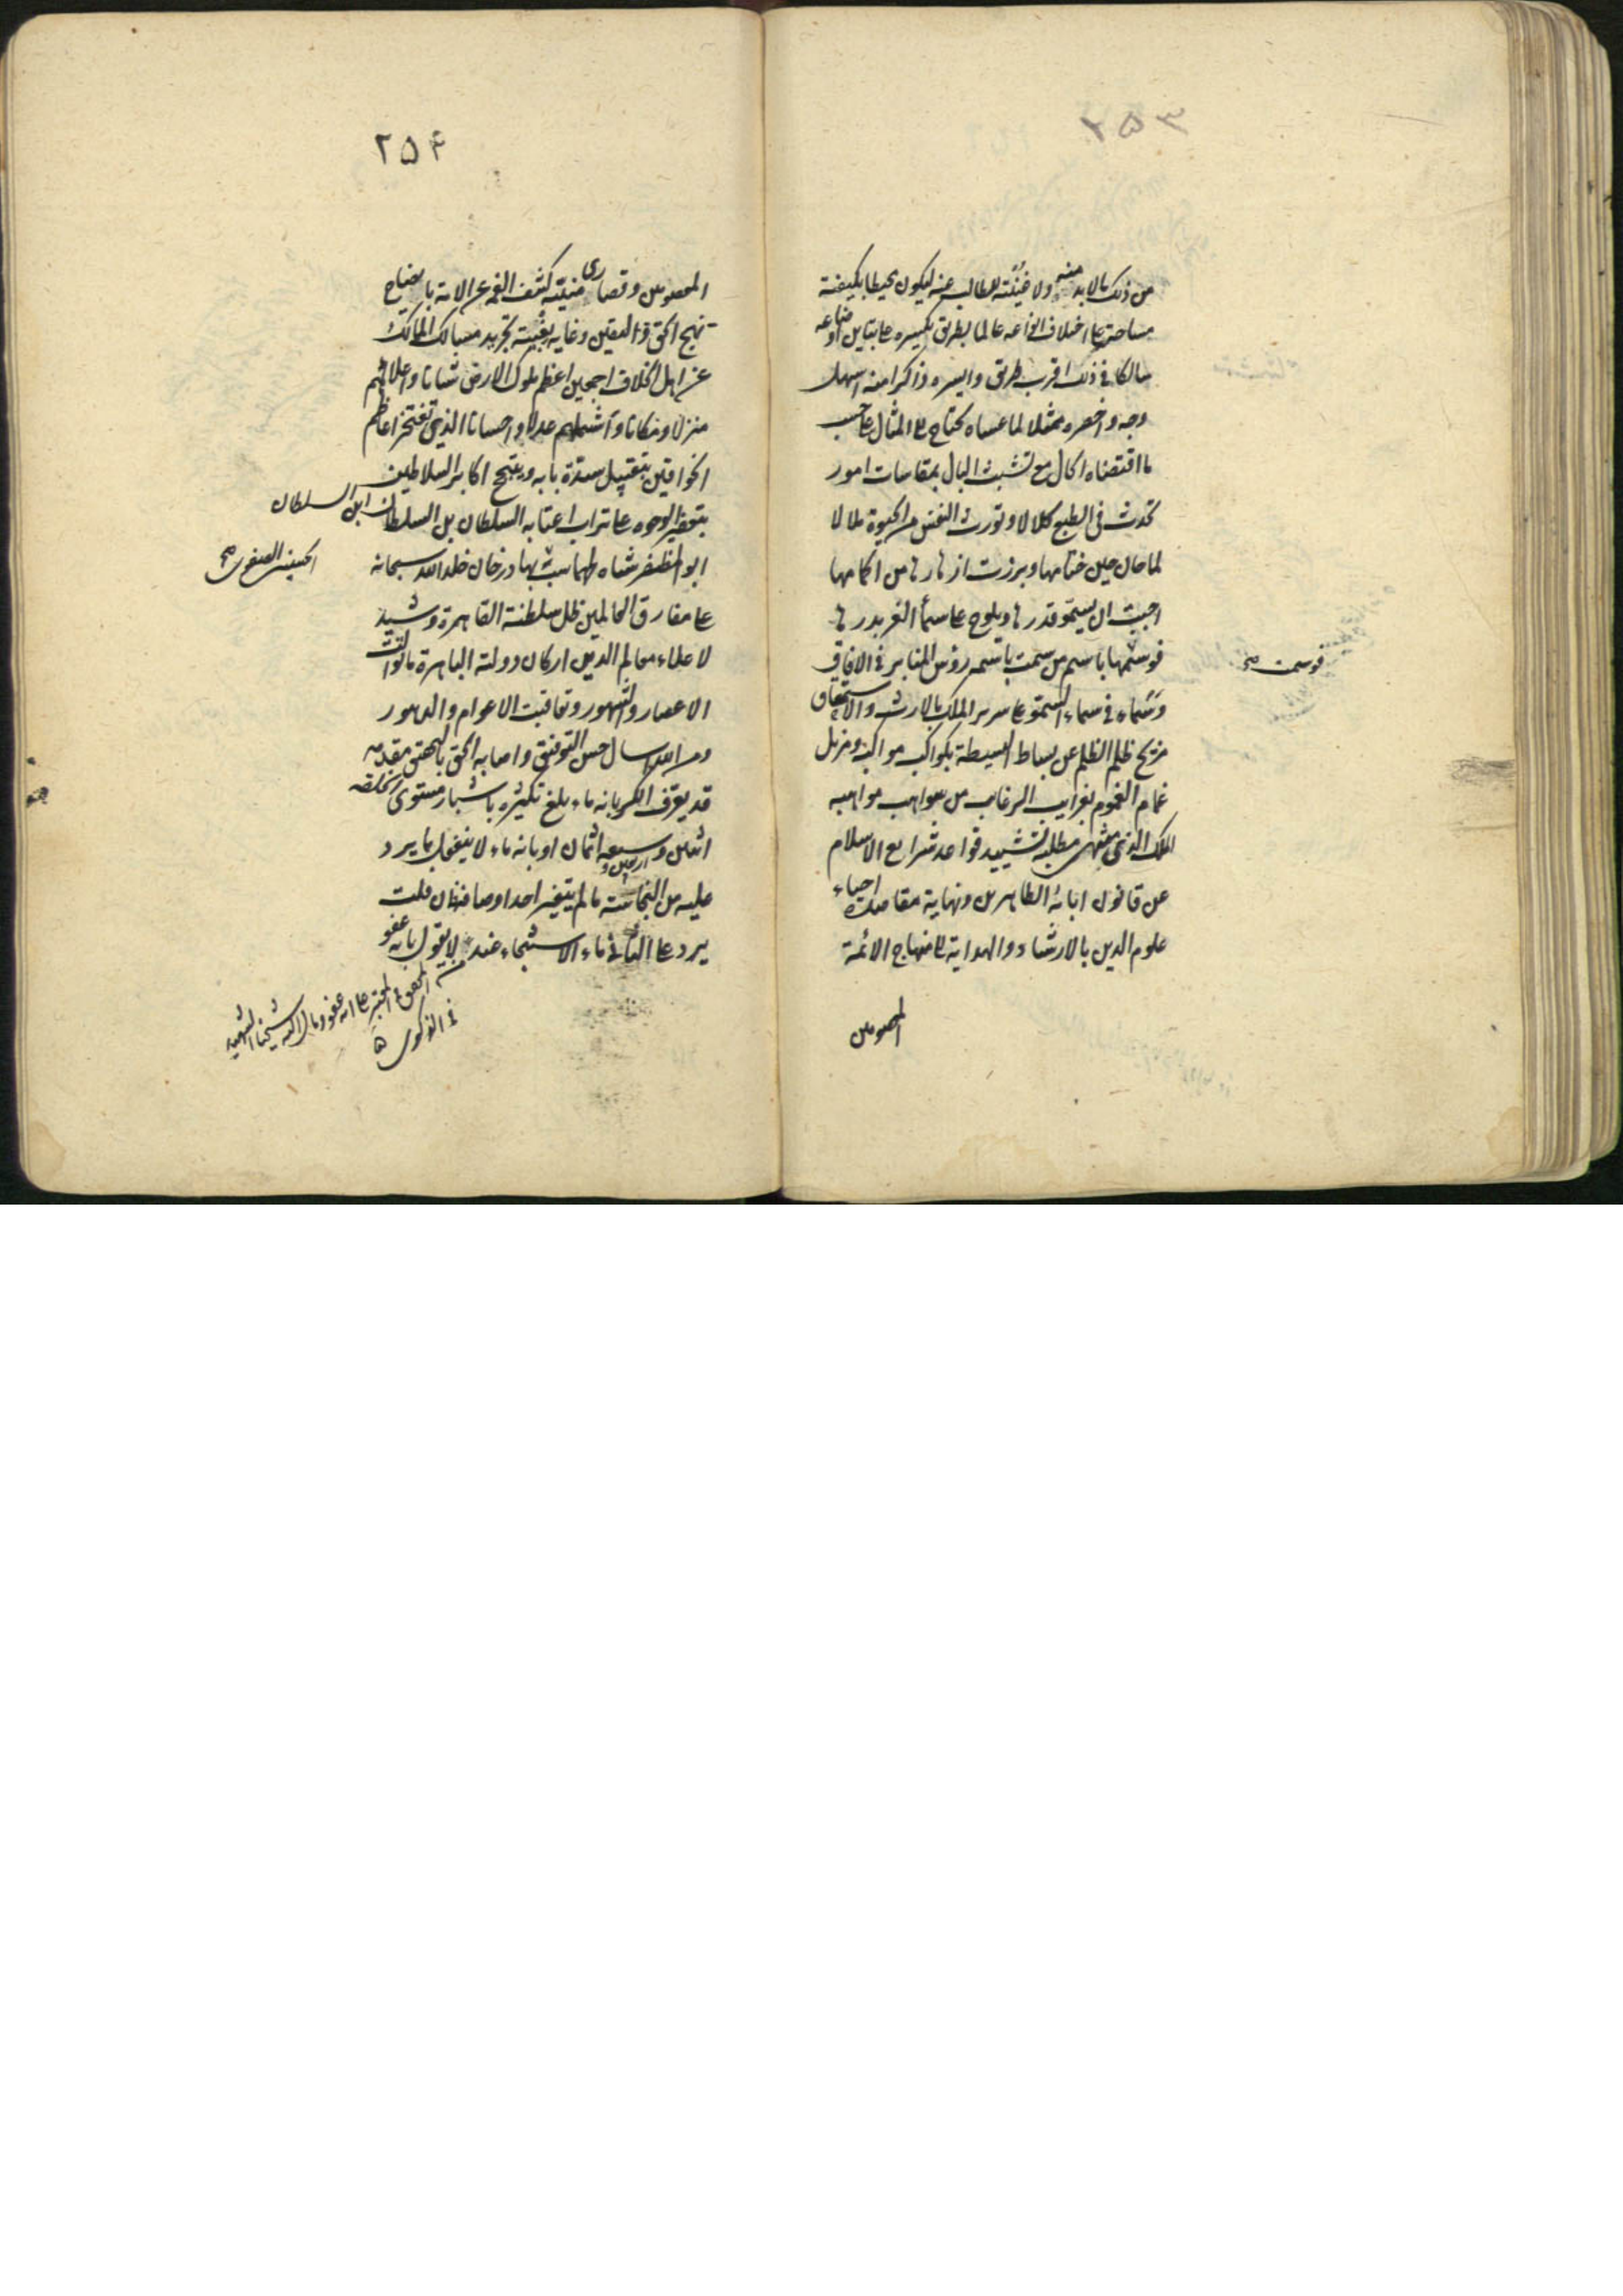 ۲۵۳
من ذلك ما لابد منه ولا غنية للطالب عنه ليكون محيطا بكيفية
مساحته على اختلاف انواعه عالما بطريق تكسيره على تباين اوضاعه
سالكا في ذلك اقرب طريق وايسره ذاكرا منه اسهل
وجه واخصره ممثلا لما عساه يحتاج الى المثال على حسب
ما اقتضاه الحال مع تشبث البال بمقاسات امور
تحدث في الطبع كلالا وتورث النفس من الحيوة ملالا
لما حان حين ختامها وبرزت ازهارها من اكمامها
احببت ان يسمو قدرها ويلوح على سماء الفخر بدرها
فوسمتها باسم من سمت باسمه رؤس المنابر في الافاق
فوسمت صح
وسماه في سماء السمو على سرير الملك بالارث والاستحقاق
مزيح ظلم الظلم عن بساط البسيطة بكواكب مواكبه ومزيل
غمام الغموم بغرايب الرغايب من مواهبه
الملك الذي منتهى مطلبه تشييد قواعد شرايع الاسلام
عن قانون ابائه الطاهرين ونهاية مقاصده احياء
علوم الدين بالارشاد والهداية الى منهاج الائمة
المعصومين
۲۵۴
المعصومين وقصارى منيته كشف الغمة عن الامة بايضاح
نهج الحق واليقين وغاية بغيته تجريد مسالك الممالك
عن اهل الخلاف اجمعين اعظم ملوك الارض شانا واعلاهم
منزلا ومكانا واشملهم عدلا واحسانا الذي تفتخر اعاظم
الخواقين بتقبيل سدة بابه ويبتهج اكابر السلاطين
بتعفير الوجوه على تراب اعتابه السلطان بن السلطان ابن السلطان
ابو المظفر شاه طهماسب بهادرخان خلد الله سبحانه
الحسيني الصفوي صح
على مفارق العالمين ظل سلطنته القاهرة وشيد
لاعلاء معالم الدين اركان دولته الباهرة ما توالت
الاعصار والشهور وتعاقبت الاعوام والدهور
ومن الله اسال حسن التوفيق واصابة الحق بالتحقيق مقدمه
قد يعرف الكر بانه ماء بلغ تكثيره باشبار مستوى الخلقه
اثنين واربعين وسبعة اثمان او بانه ماء لا ينفعل بما يرد
عليه من النجاسة ما لم يتغير احد اوصافه فان قلت
يرد على الثاني ماء الاستنجاء عند من لا يقول بانه عفو
المحقق في المعتبر على انه عفو ومال اليه شيخنا الشهيد
في الذكرى